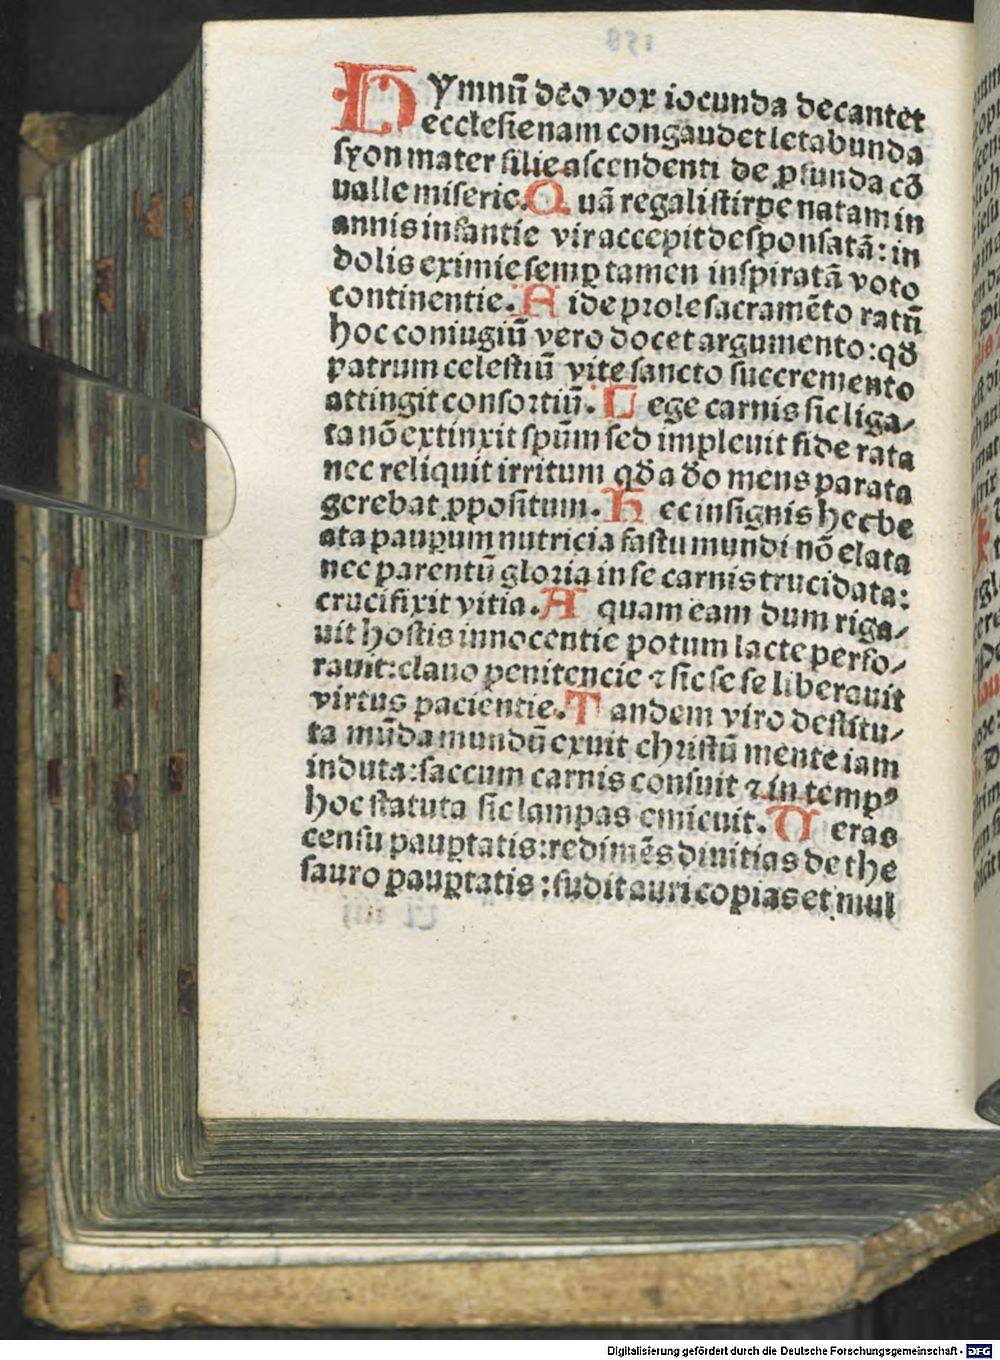 Hymnū deo vox iocunda decantet
ecclesie nam congaudet letabunda
syon mater filie ascendenti de ꝓfunda cō
ualle miserie. Quā regali stirpe natam in
annis infantie vir accepit desponsatā: in
dolis eximie semꝑ tamen inspiratā voto
continentie. Fide prole sacramēto ratū
hoc coniugiū vero docet argumento: qđ
patrum celestiū vite sancto succremento
attingit consortiū. Lege carnis sic liga⸗
ta nō extinxit spūm sed impleuit fide rata
nec reliquit irritum qđ a deo mens parata
gerebat ꝓpositum. Hec insignis hec be
ata pauꝑum nutricia fastu mundi nō elata
nec parentū gloria in se carnis trucidata:
crucifixit vitia. A quam eam dum riga⸗
uit hostis innocentie potum lacte perfo⸗
rauit: clauo penitencie ⁊ sic se se liberauit
virtus pacientie. Tandem viro destitu⸗
ta mūda mundū exuit christū mente iam
induta: saccum carnis consuit ⁊ in tempꝰ
hoc statuta sic lampas emicuit. Veras
censu pauꝑtatis: redimēs diuitias de the
sauro pauꝑtatis: fudit auri copias et mul
Digitalisierung gefördert durch die Deutsche Forschungsgemeinschaft - DFG